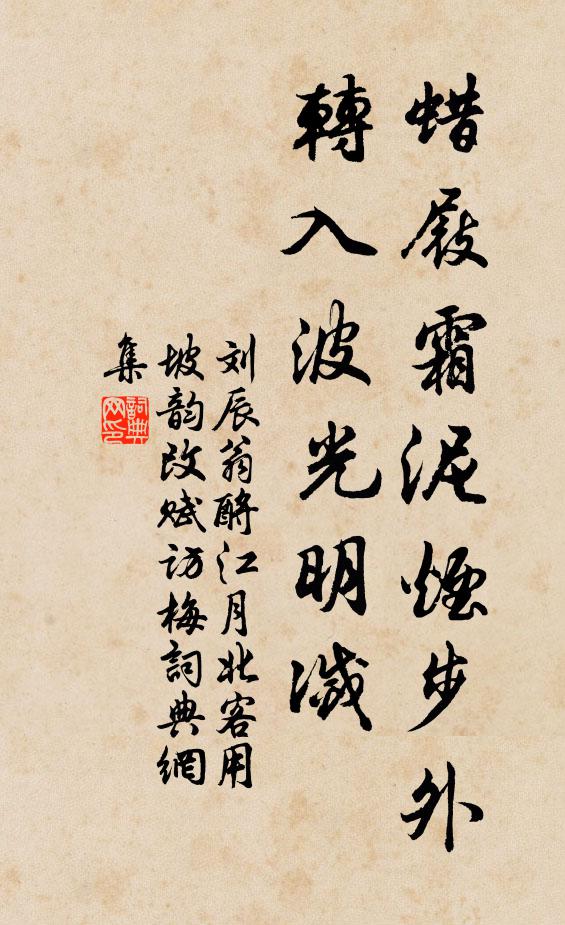 蜡屐霜泥煙步外
轉入波光明滅
刘辰翁酹江月北客用
坡韵改赋访梅詞典網
集
詞典網印